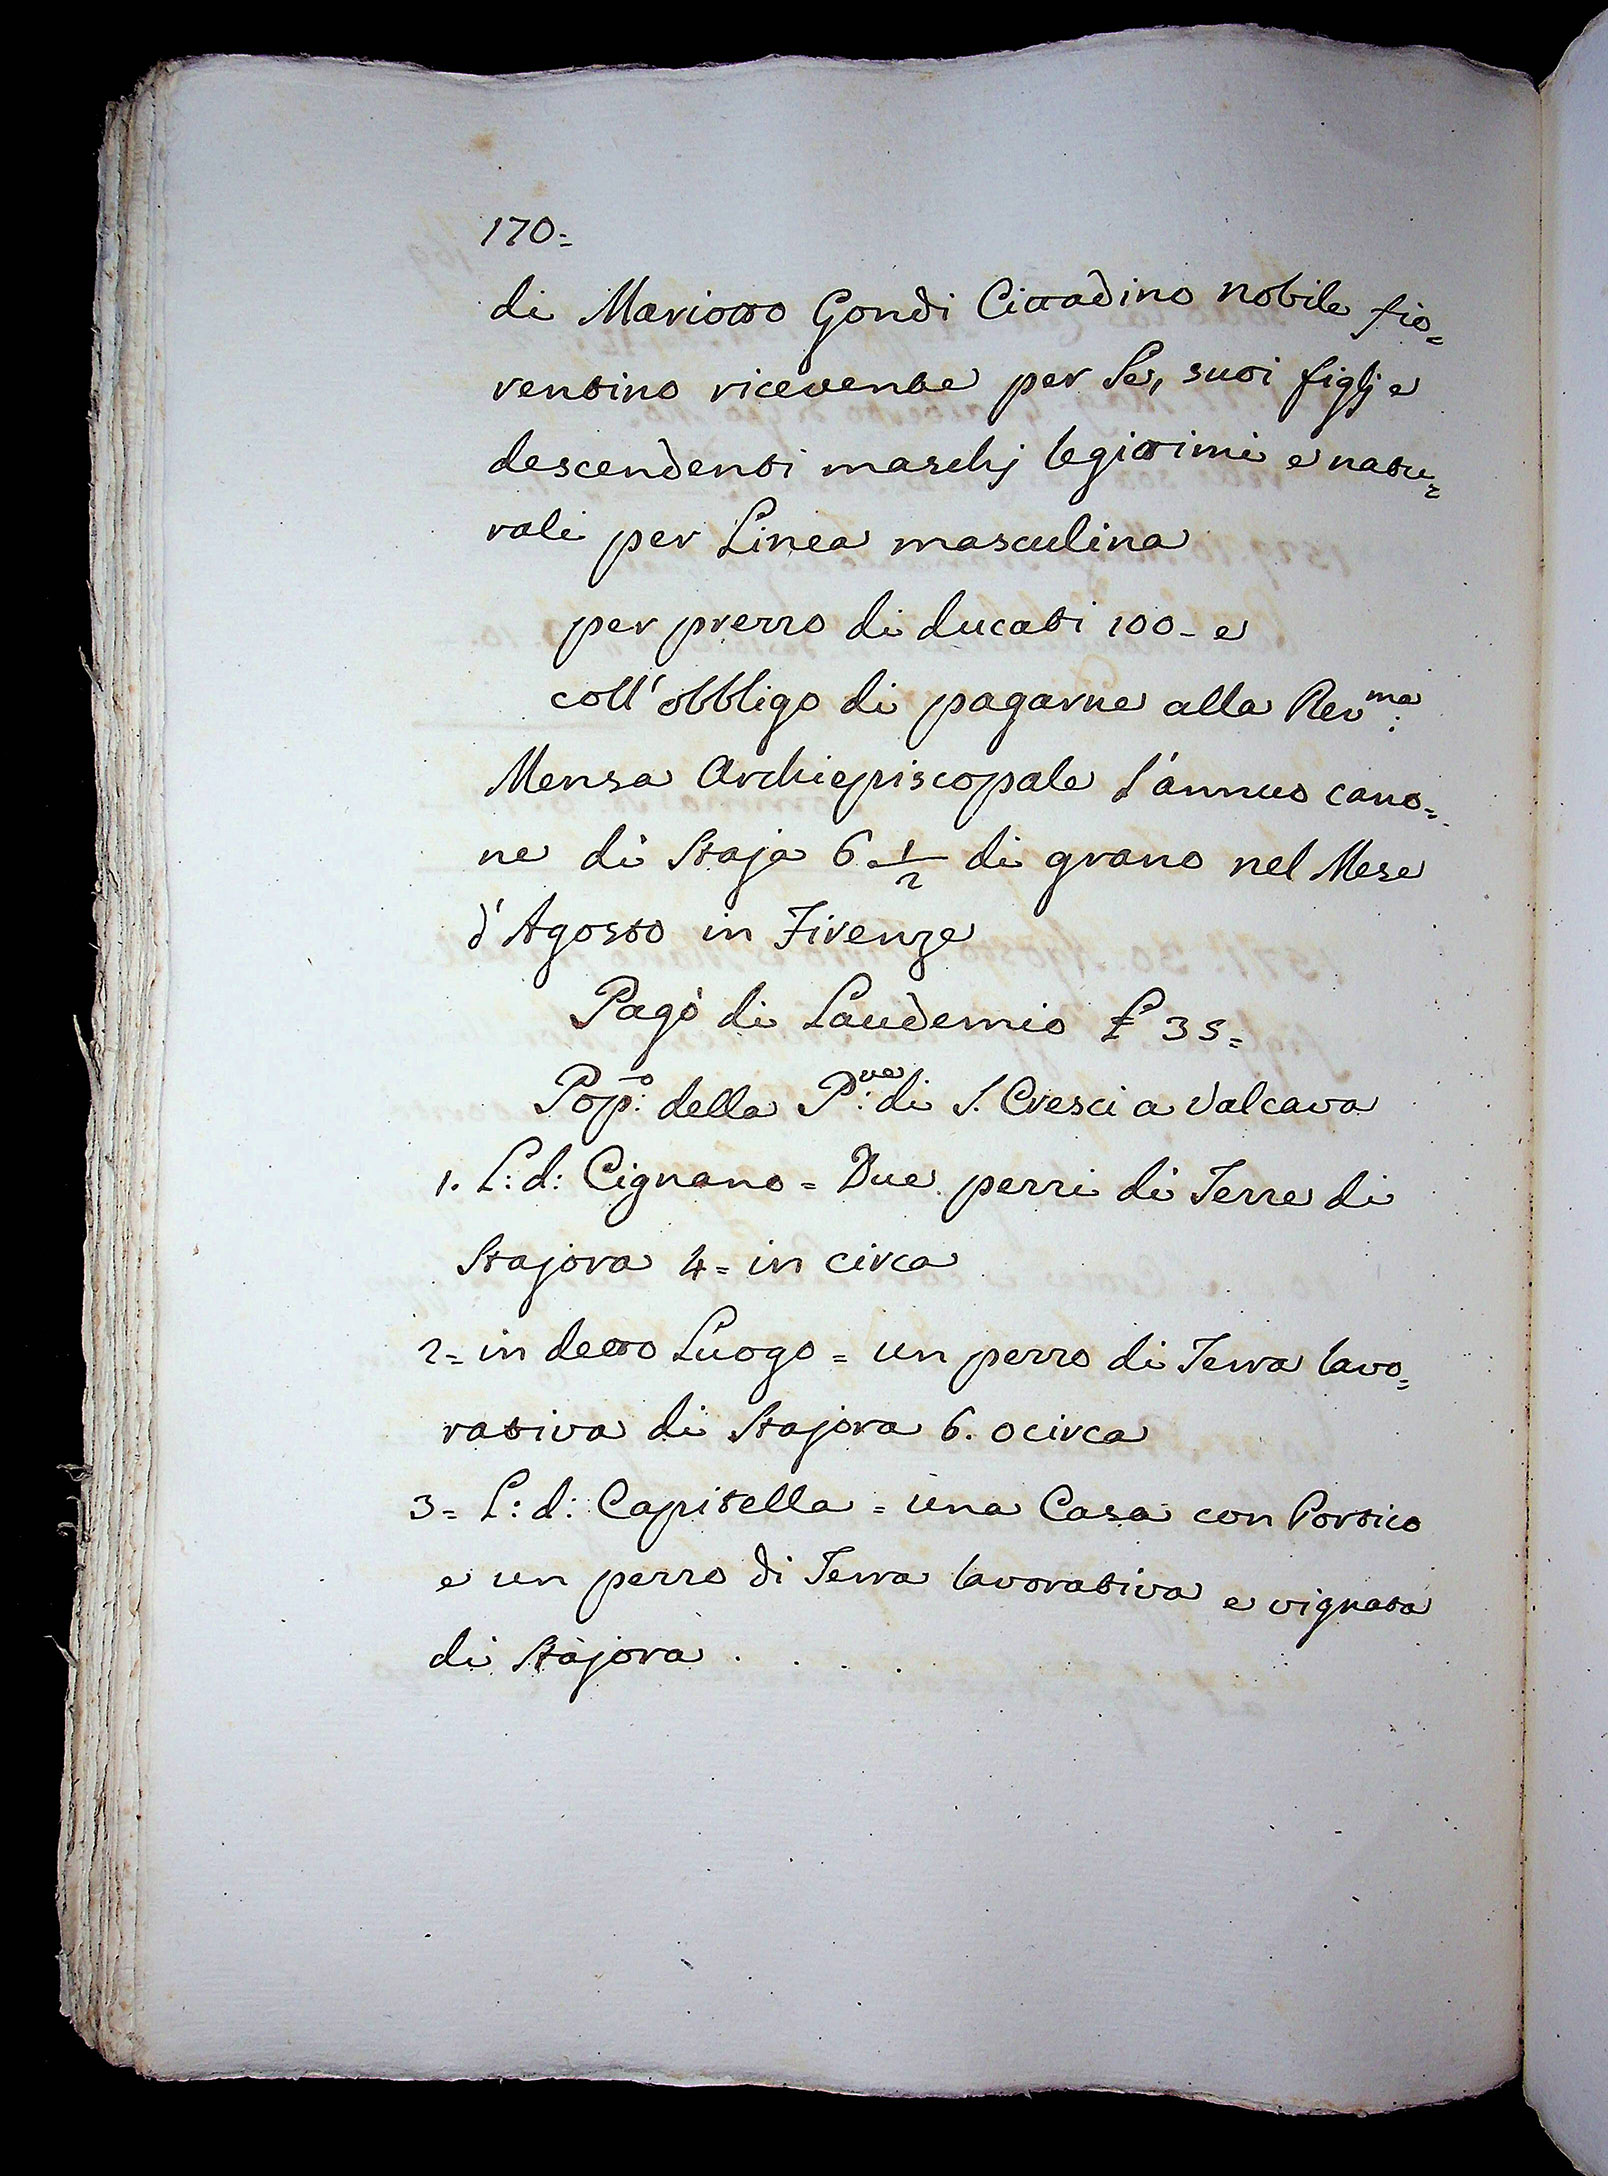 170=
di Mariotto Gondi Cittadino nobile fio=
rentino ricevente per Se, suoi figlj e
descendenti maschj legittimi e natu=
rali per Linea masculina
per prezzo di ducati 100- e
coll'obbligo di pagarne alla Rev:ma
Mensa Archiepiscopale l'annuo cano=
ne di Staja 6 1/2 di grano nel Mese
d'Agosto in Firenze
Pagò di Laudemio £ 35=
Pop:o della P:ve di S. Cresci a Valcava
1. L: d: Cignano = Due pezzi di Terre di
Stajora 4= in circa
2= in detto Luogo = un pezzo di Terra lavo=
rativa di Stajora 6. o circa
3= L: d: Capitella = una Casa con Portico
e un pezzo di Terra lavorativa e vignata
di Stajora . . . .